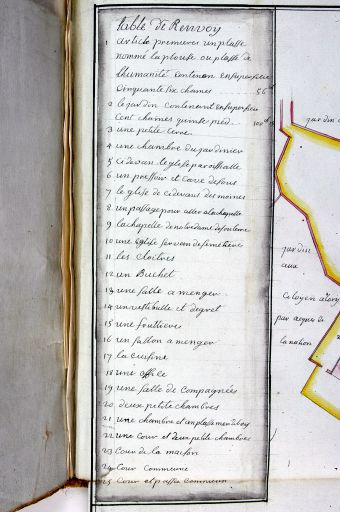 table de Renvoy
1 article premiere un plasse
nommé la plouse ou plasse de
lhumanité contenan en superficie
Cinquante six chaines 56
2 le jardin contenant en superficie
Cent chaines quinse pied
3 une petite Cerre
4 une chambre du jardinier
5 cidevan leglese paroissialle
6 un pressoir et Cave desous
7 leglise de cidevans des moines
8 un passage pour aller a la chapelle
9 la chapelle de nostredame
10 une Eglise servan de semetiere
11 les Cloitres
12 un Buchet
13 une salle a menger
14 un vestibulle et degret
15 une fruttiere
16 un sallon a menger
17 la Cuisine
18 une office
19 une salle de Compagniés
20 deux petite chambres
21 une chambre et emplasemen
22 une Cour et deux petite chambres
23 Cour de la maison
24 Cour Commeune
25 Cour et passée Commeun
jardin
jardin
aux
Citoyen
par
la nation